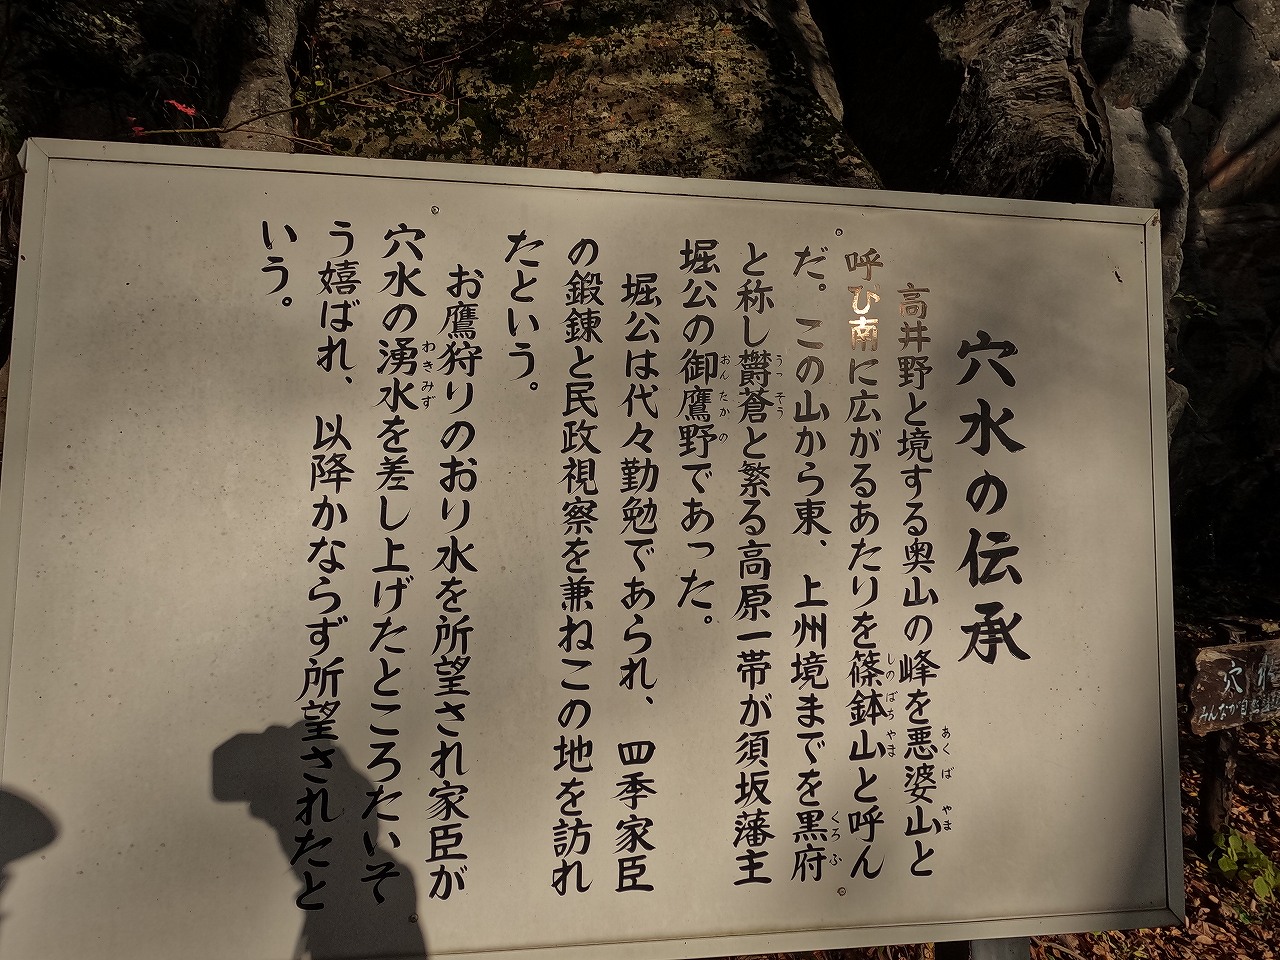 穴水の伝承
高井野と境する奥山の峰を悪婆山と
あくばやま
呼び南に広がるあたりを篠鉢山と呼ん
しのばちやま
だ。この山から東、上州境までを黒府
くろふ
と称し欝蒼と繁る高原一帯が須坂藩主
うっそう
堀公の御鷹野であった。
おんたかの
堀公は代々勤勉であられ、四季家臣
の鍛錬と民政視察を兼ねこの地を訪れ
たという。
お鷹狩りのおり水を所望され家臣が
穴水の湧水を差し上げたところたいそ
わきみず
う嬉ばれ、以降かならず所望されたと
いう。
穴水
みんなが自